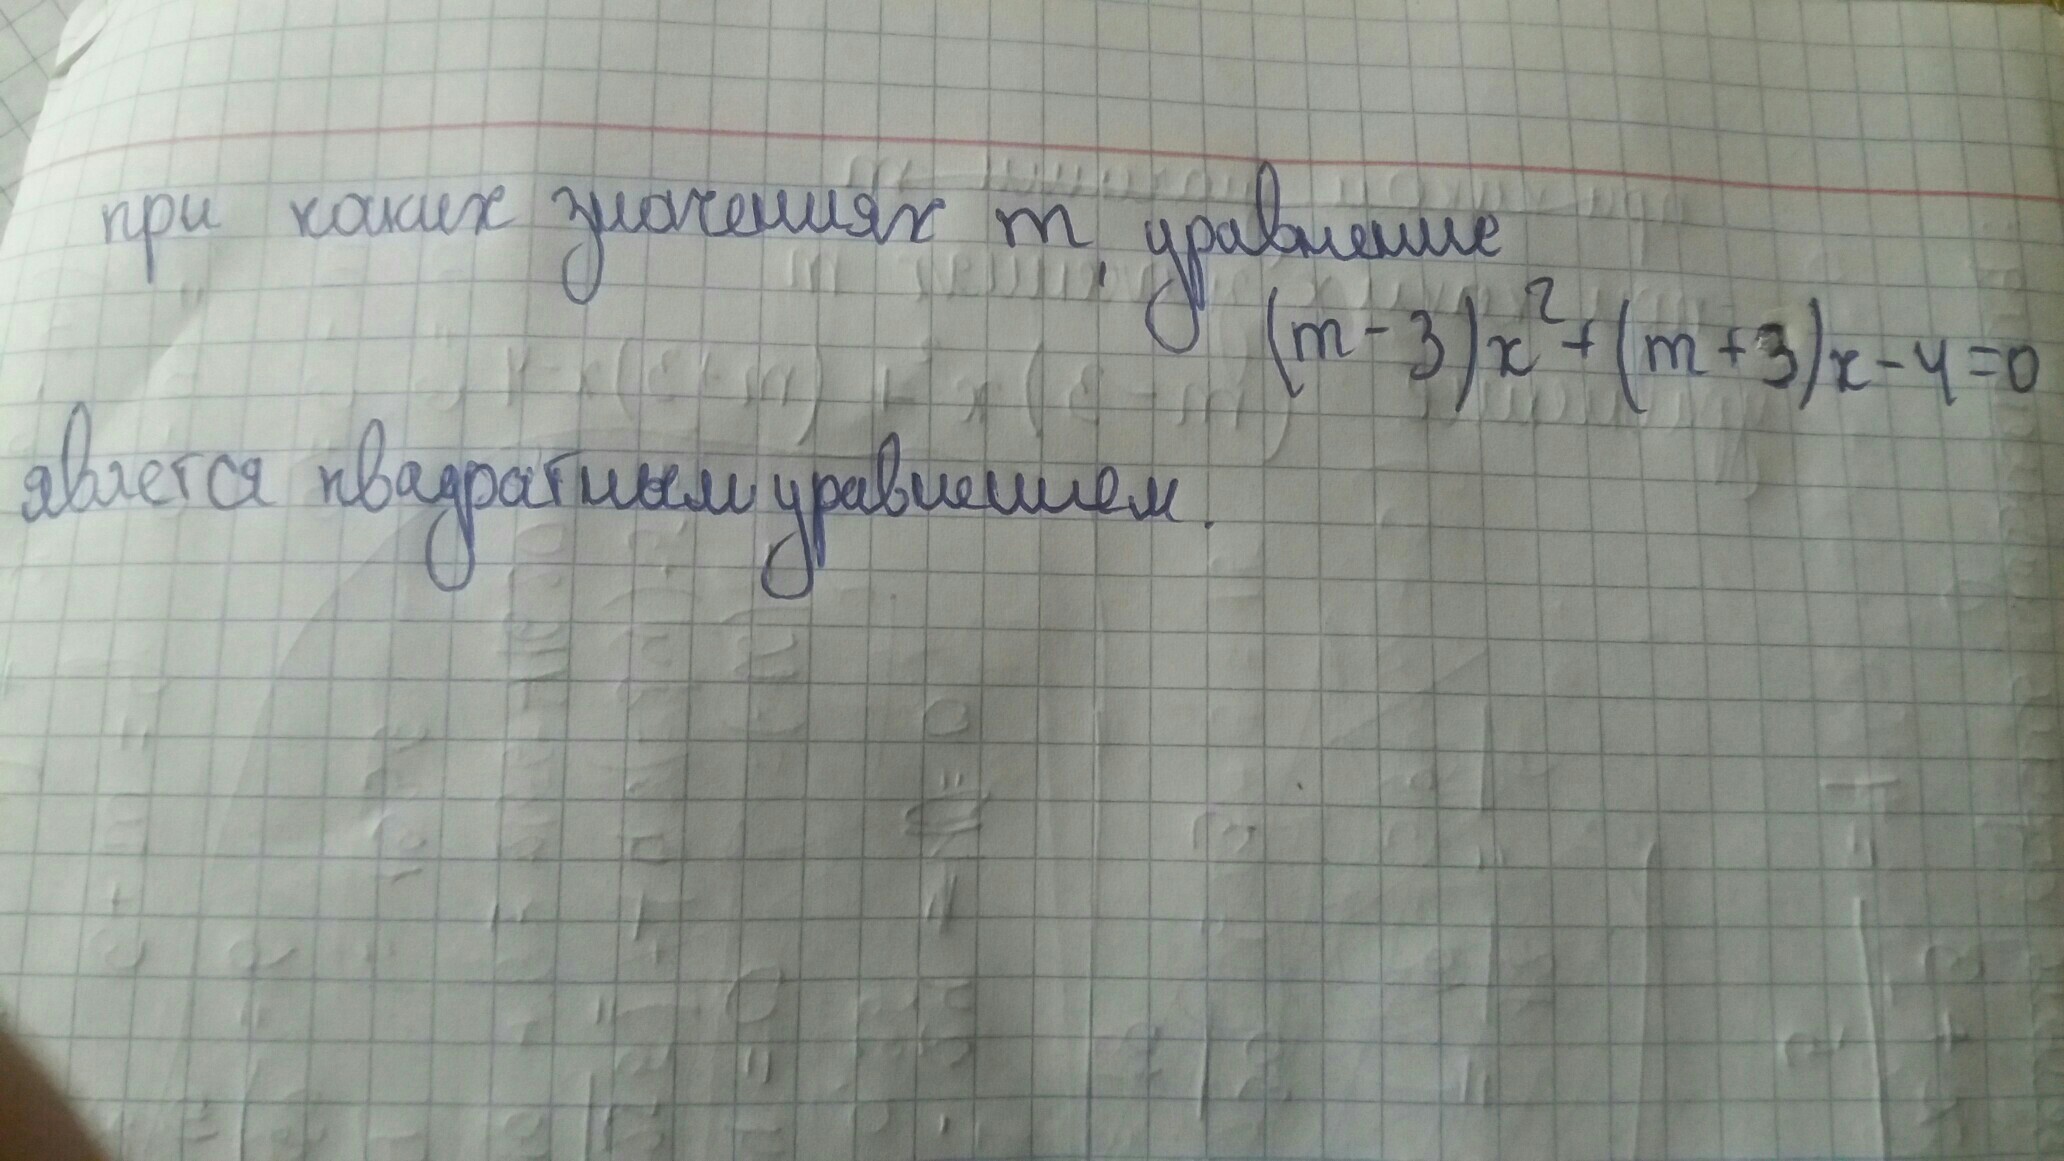 при каких значениях m, уравнение
(m-3)x²+(m+3)x-4=0
явлется квадратным уравнением.